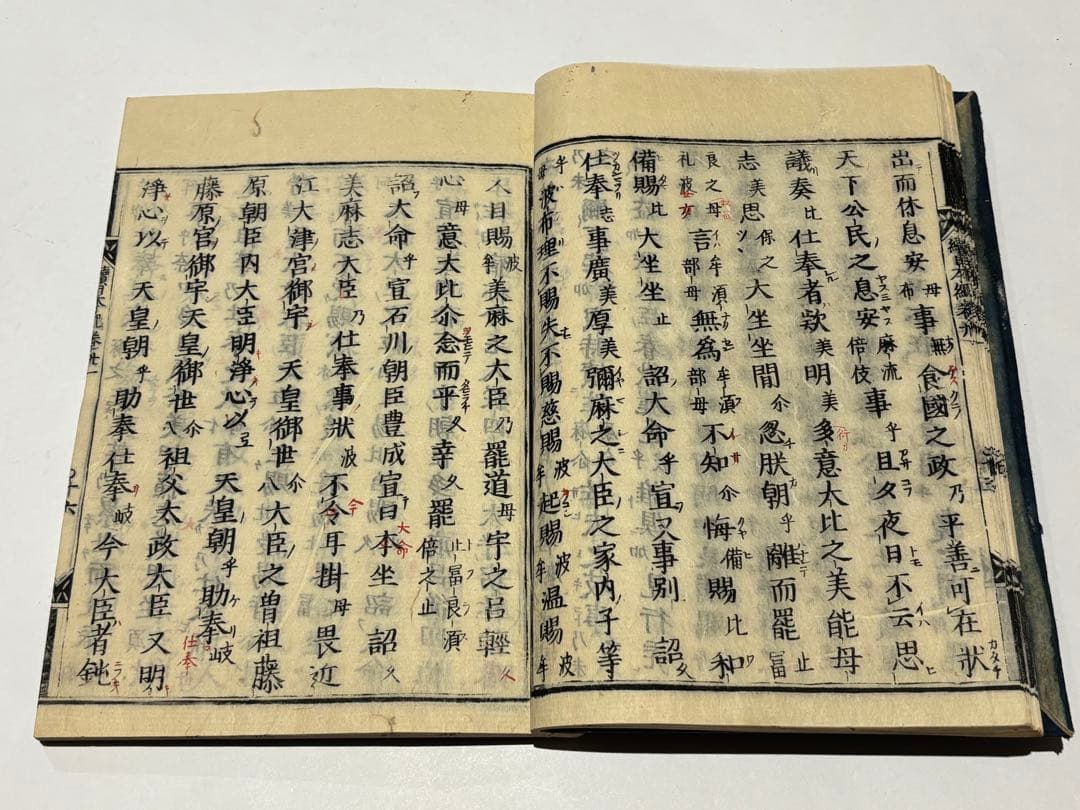 出而休息安布母事無食國之政乃平善可在狀
天下公民之息安麻流倍伎事乎旦夕夜日不云思
議奏比仕奉者欵美明美意太比之美多能母
志美思保之大坐坐間尒忽朕朝乎離而罷止富
良之母礼波言牟須部母無為牟須部母不知尒悔備賜比和
備賜比大坐坐止詔大命乎宣又事別詔久
仕奉志事廣美厚美彌麻之大臣之家内子等
乎母波布理不賜失不賜慈賜波牟起賜波牟温賜波牟
人目賜波牟美麻之大臣乃罷道母宇之呂輕久
心母意太比尒念而平久幸久罷止富良須倍之止
詔大命乎宣石川朝臣豊成宣曰本坐詔久
美麻志大臣乃仕奉事狀波不今耳掛母畏近
江大津宮御宇天皇御世尒八大臣之曽祖藤
原朝臣内大臣明淨心以弖天皇朝乎助奉岐
藤原宮御宇天皇御世尒八祖父太政大臣又明
淨心以天皇朝乎助奉仕奉岐今大臣者鈍